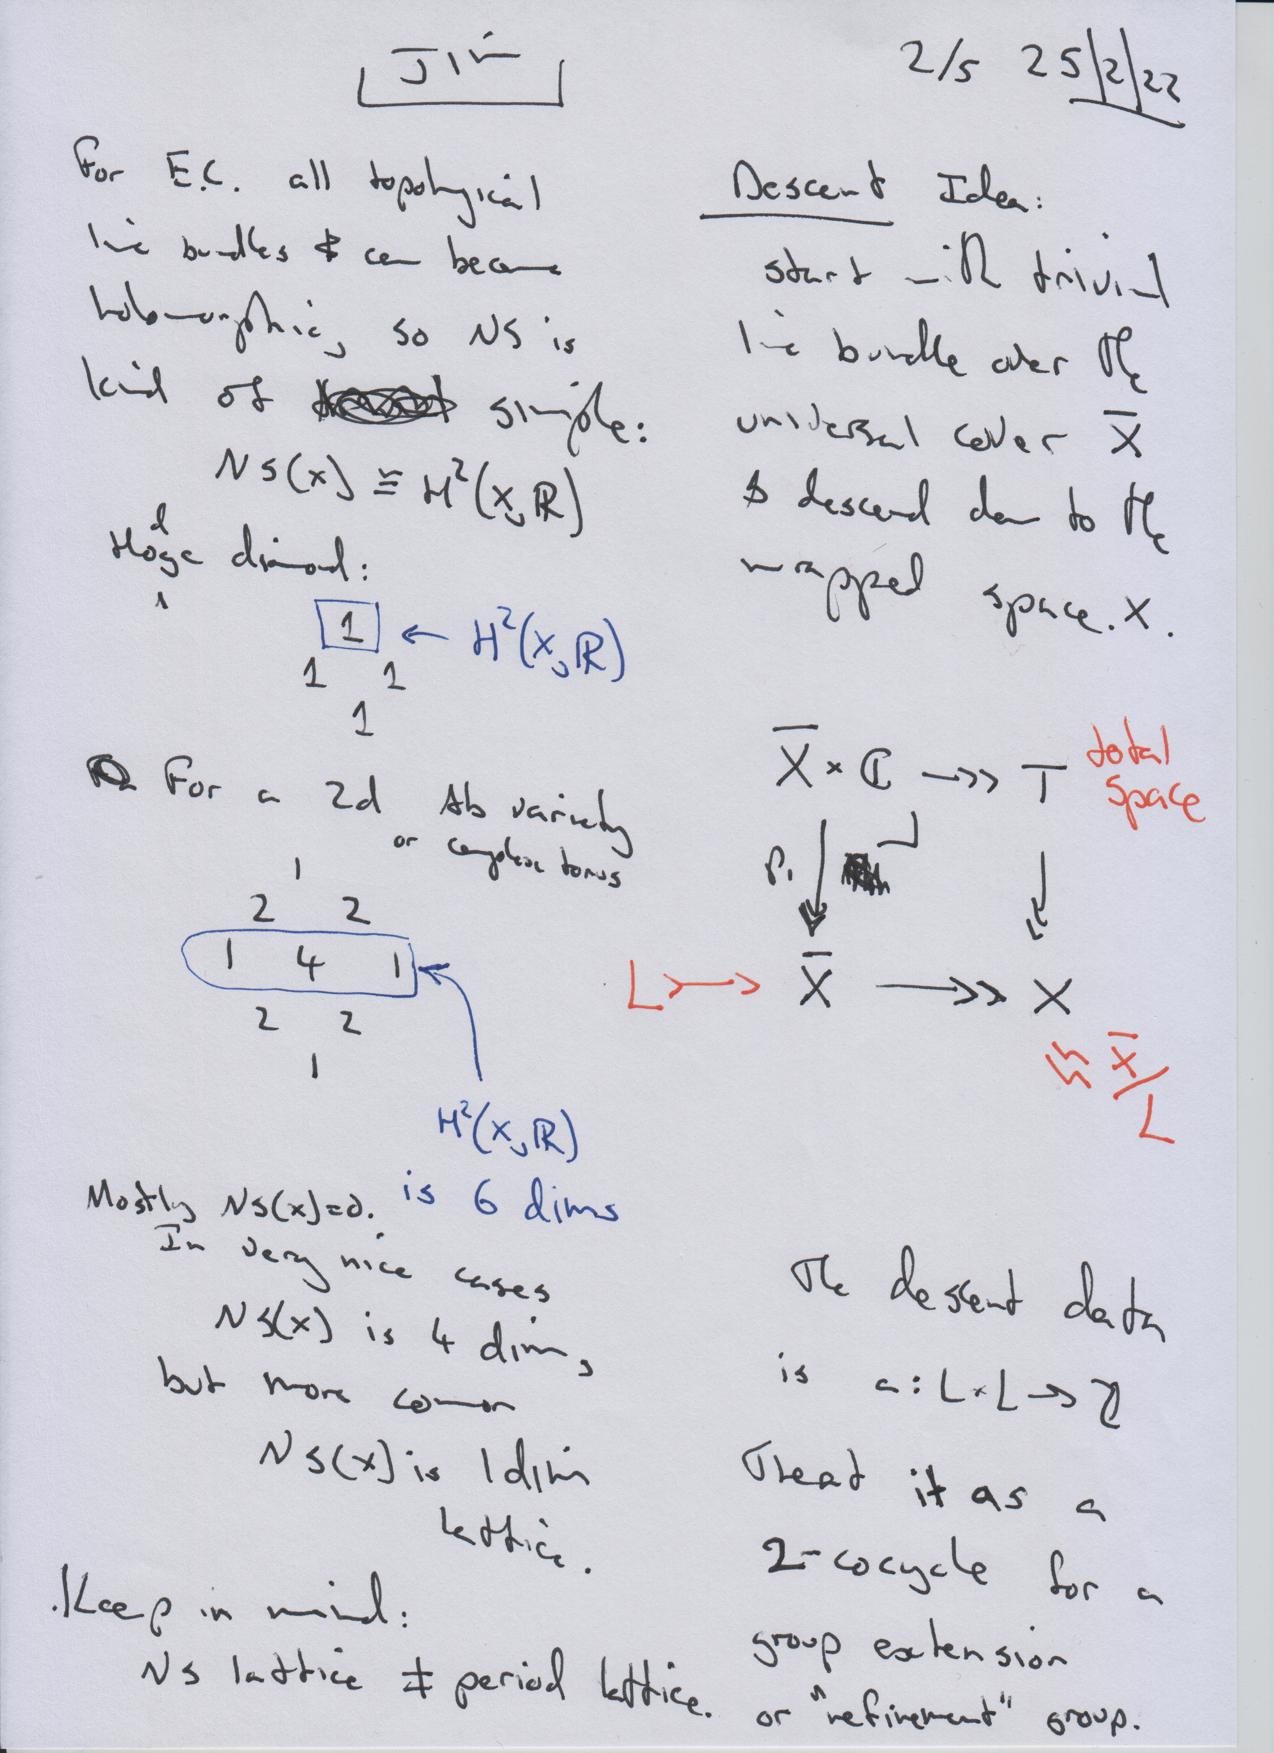 JIM
2/5 25/2/22
For E.C. all topological
line bundles & can become
holomorphic, so NS is
kind of simple:
NS(X) ≅ H²(X, ℝ)
Hodge diamond:
1 ← H²(X, ℝ)
1 1
1
For a 2d Ab variety
or complex torus
1
2 2
1 4 1
2 2
1
H²(X, ℝ)
is 6 dims
Mostly NS(X)=0.
In very nice cases
NS(X) is 4 dim,
but more common
NS(X) is 1 dim
lattice.
Keep in mind:
NS lattice ≠ period lattice.
Descent Idea:
start with trivial
line bundle over the
universal cover X̅
& descend down to the
wrapped space. X.
X̅ × ℂ ↠ T total
space
P₁
L ↣ X̅ ↠ X
≅ X̅/L
The descent data
is a: L×L → ℤ
Treat it as a
2-cocycle for a
group extension
or "refinement" group.